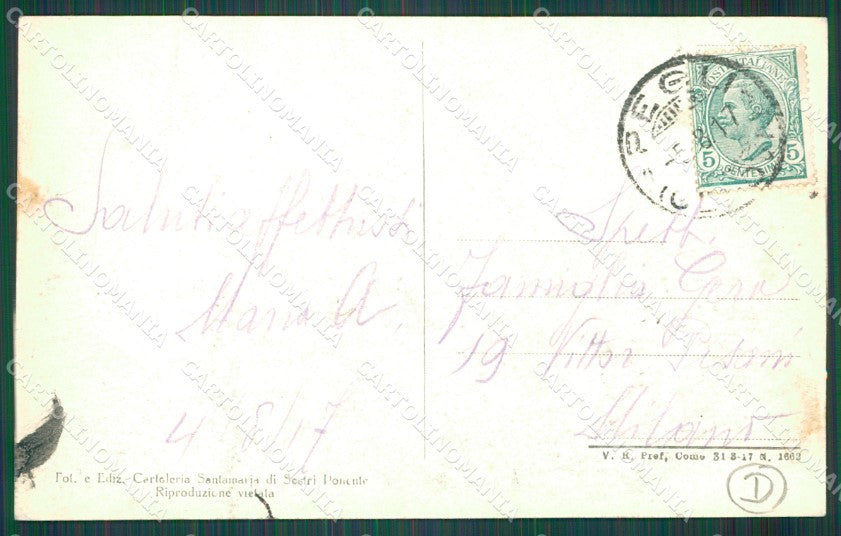 Saluti affettuosi
Maria A.
4/8/17
Fot. e Ediz. Cartoleria Santamaria di Sestri Ponente
Riproduzione vietata
PEGLI
8.17
POSTE ITALIANE
5 5
CENTESIMI
Spett.
Famiglia
19 Vittor Pisani
Milano
V. R. Pref. Como 31-8-17 N. 1662
D
CARTOLINOMANIA